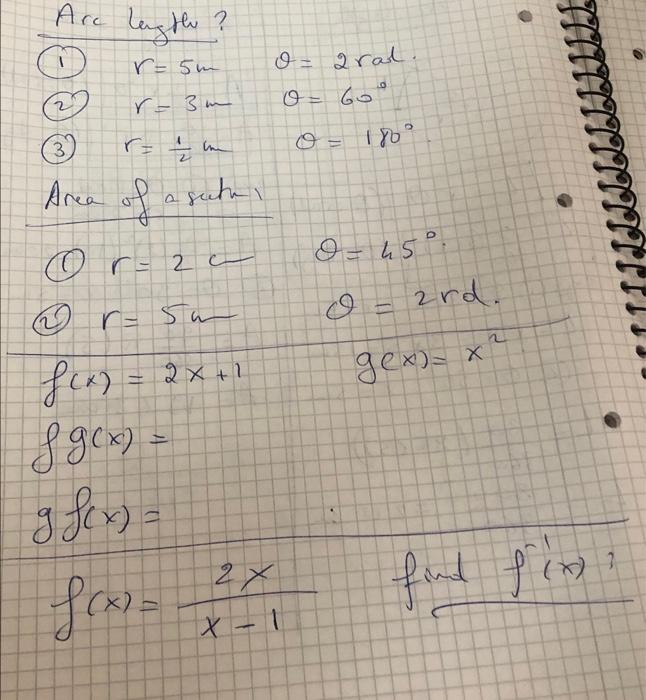 Arc length?
① r = 5m θ = 2 rad.
② r = 3m θ = 60°
③ r = 1/2 m θ = 180°
Area of a
① r = 2 θ = 45°.
② r = 5 θ = 2 rd.
f(x) = 2x+1 g(x) = x²
fg(x) =
gf(x) =
f(x) = 2x / x-1 find f⁻¹(x)?